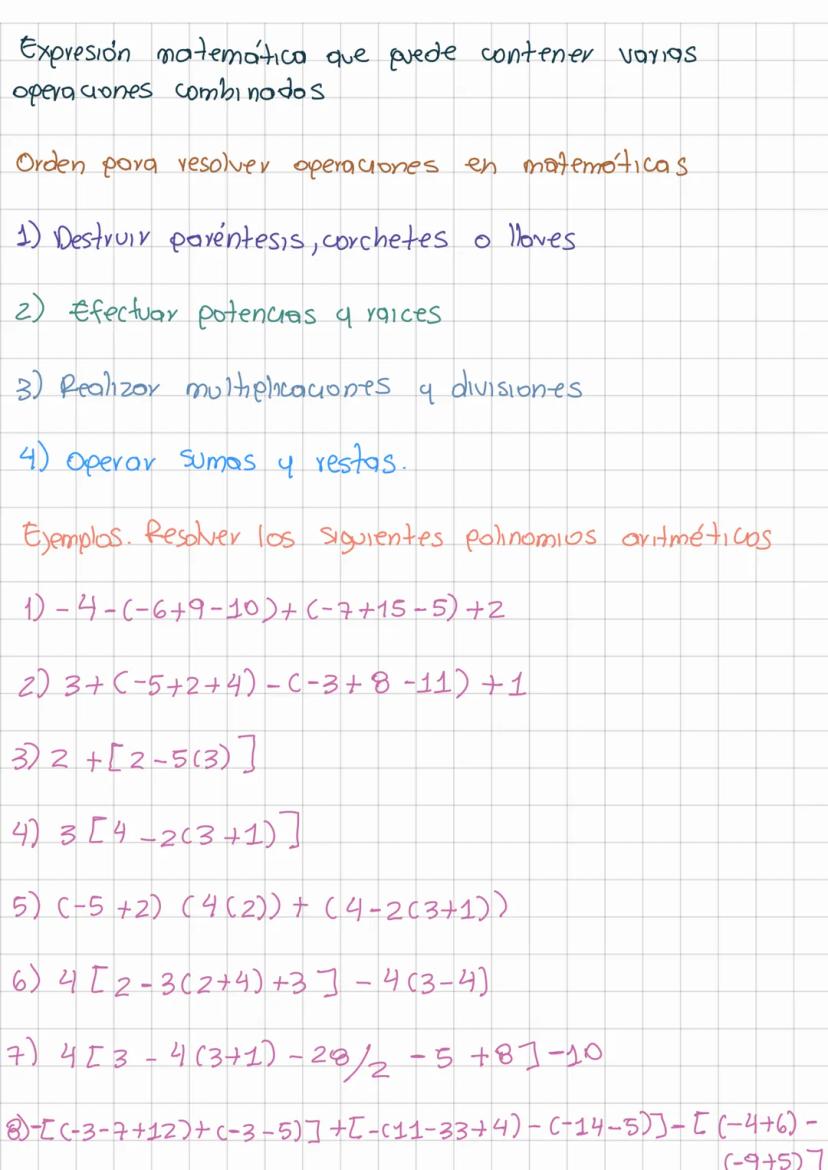 Expresión matemática que puede contener varias
operaciones combinadas
Orden para resolver operaciones en matemáticas
1) Destruir paréntesis, corchetes o llaves
2) Efectuar potencias y raices
3) Realizar multiplicaciones y divisiones
4) Operar sumas y restas.
Ejemplos. Resolver los siguientes polinomios aritméticos
1) -4-(-6+9-10)+(-7+15-5)+2
2) 3+(-5+2+4)-(-3+8-11)+1
3) 2+[2-5(3)]
4) 3[4-2(3+1)]
5) (-5+2) (4(2))+(4-2(3+1))
6) 4[2-3(2+4)+3]-4(3-4]
7) 4[3-4(3+1)-28/2-5+8]-10
8) -[(-3-7+12)+(-3-5)]+[-(11-33+4)-(-14-5)]-[(-4+6)-
(-9+5)]